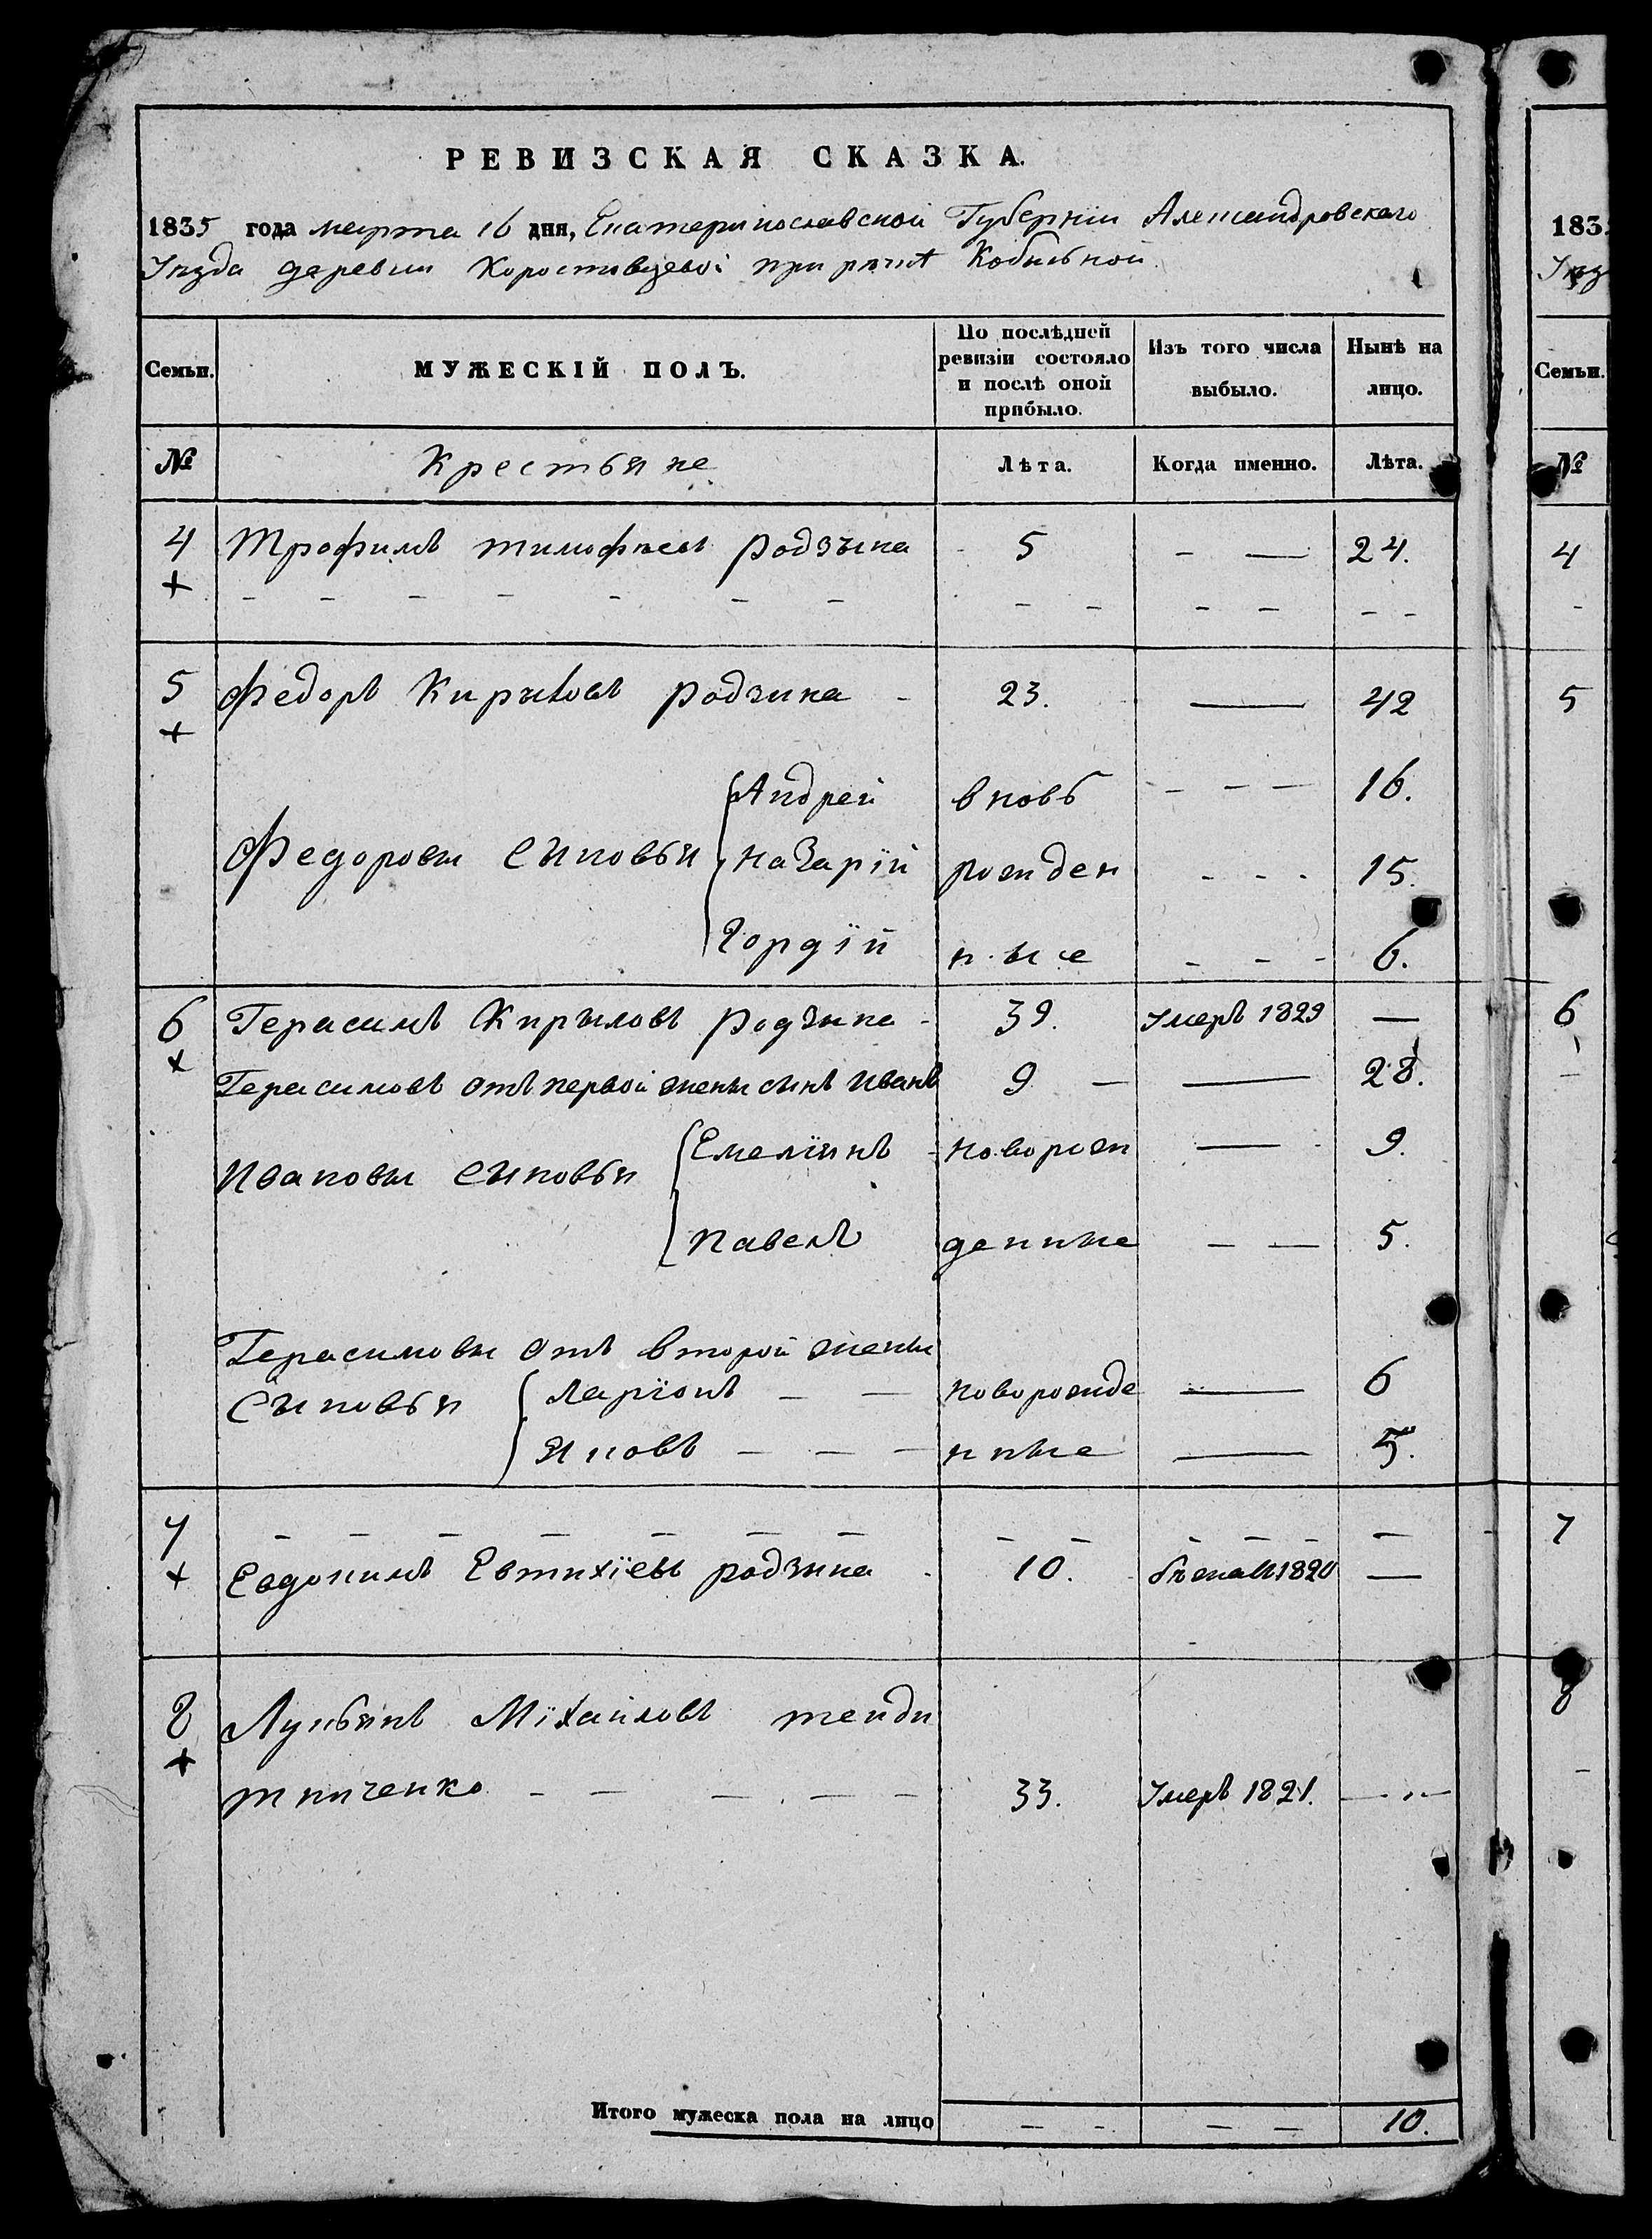 РЕВИЗСКАЯ СКАЗКА.
1835 года марта 16 дня, Екатеринославской Губернии Александровскаго
Уезда деревни Коростовцевой при речке Кобыльной
Семьи. МУЖЕСКІЙ ПОЛЪ. По послѣдней ревизіи состояло и послѣ оной прибыло. Изъ того числа выбыло. Нынѣ на лицо.
№ Крестьяне Лѣта. Когда именно. Лѣта.
4 Трофимъ тимофѣевъ родзына 5 — 24.
5 Федоръ Кирыловъ родзына 23. — 42
Андрей вновь 16.
Федоровы сыновья Назарїй рожден 15.
Гордїй ные 6.
6 Герасимъ Кирыловъ Родзына 39. Умеръ 1829 —
Герасимовъ отъ первой жены сынъ иванъ 9 — 28.
Емелїянъ новорож — 9.
Ивановы сыновья
Павелъ денные — 5.
Герасимовы отъ второй жены
Сыновья Ларїонъ — новорожде — 6
Яковъ — нные — 5.
7 — — — — — — —
Евдокимъ Евтихїевъ родзына 10. бежалъ 1820 —
8 Лукьянъ Мїхайловъ тенди
тниченко 33. Умеръ 1821. —
Итого мужеска пола на лицо — — 10.
183
Уез
Семьи.
№
4
5
6
7
8